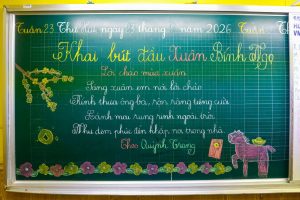 Tuần 23 Thứ Hai ngày 23 tháng 2 năm 2026 Tuần
Khai bút đầu Xuân Bính Ngọ
Lời chào mùa xuân
Sang xuân em nói lời chào
Kính thưa ông bà, rộn ràng tiếng cười
Bánh mai rung rinh ngoài trời
Như đem phúc đến khắp nơi trong nhà
Theo Quỳnh Trang